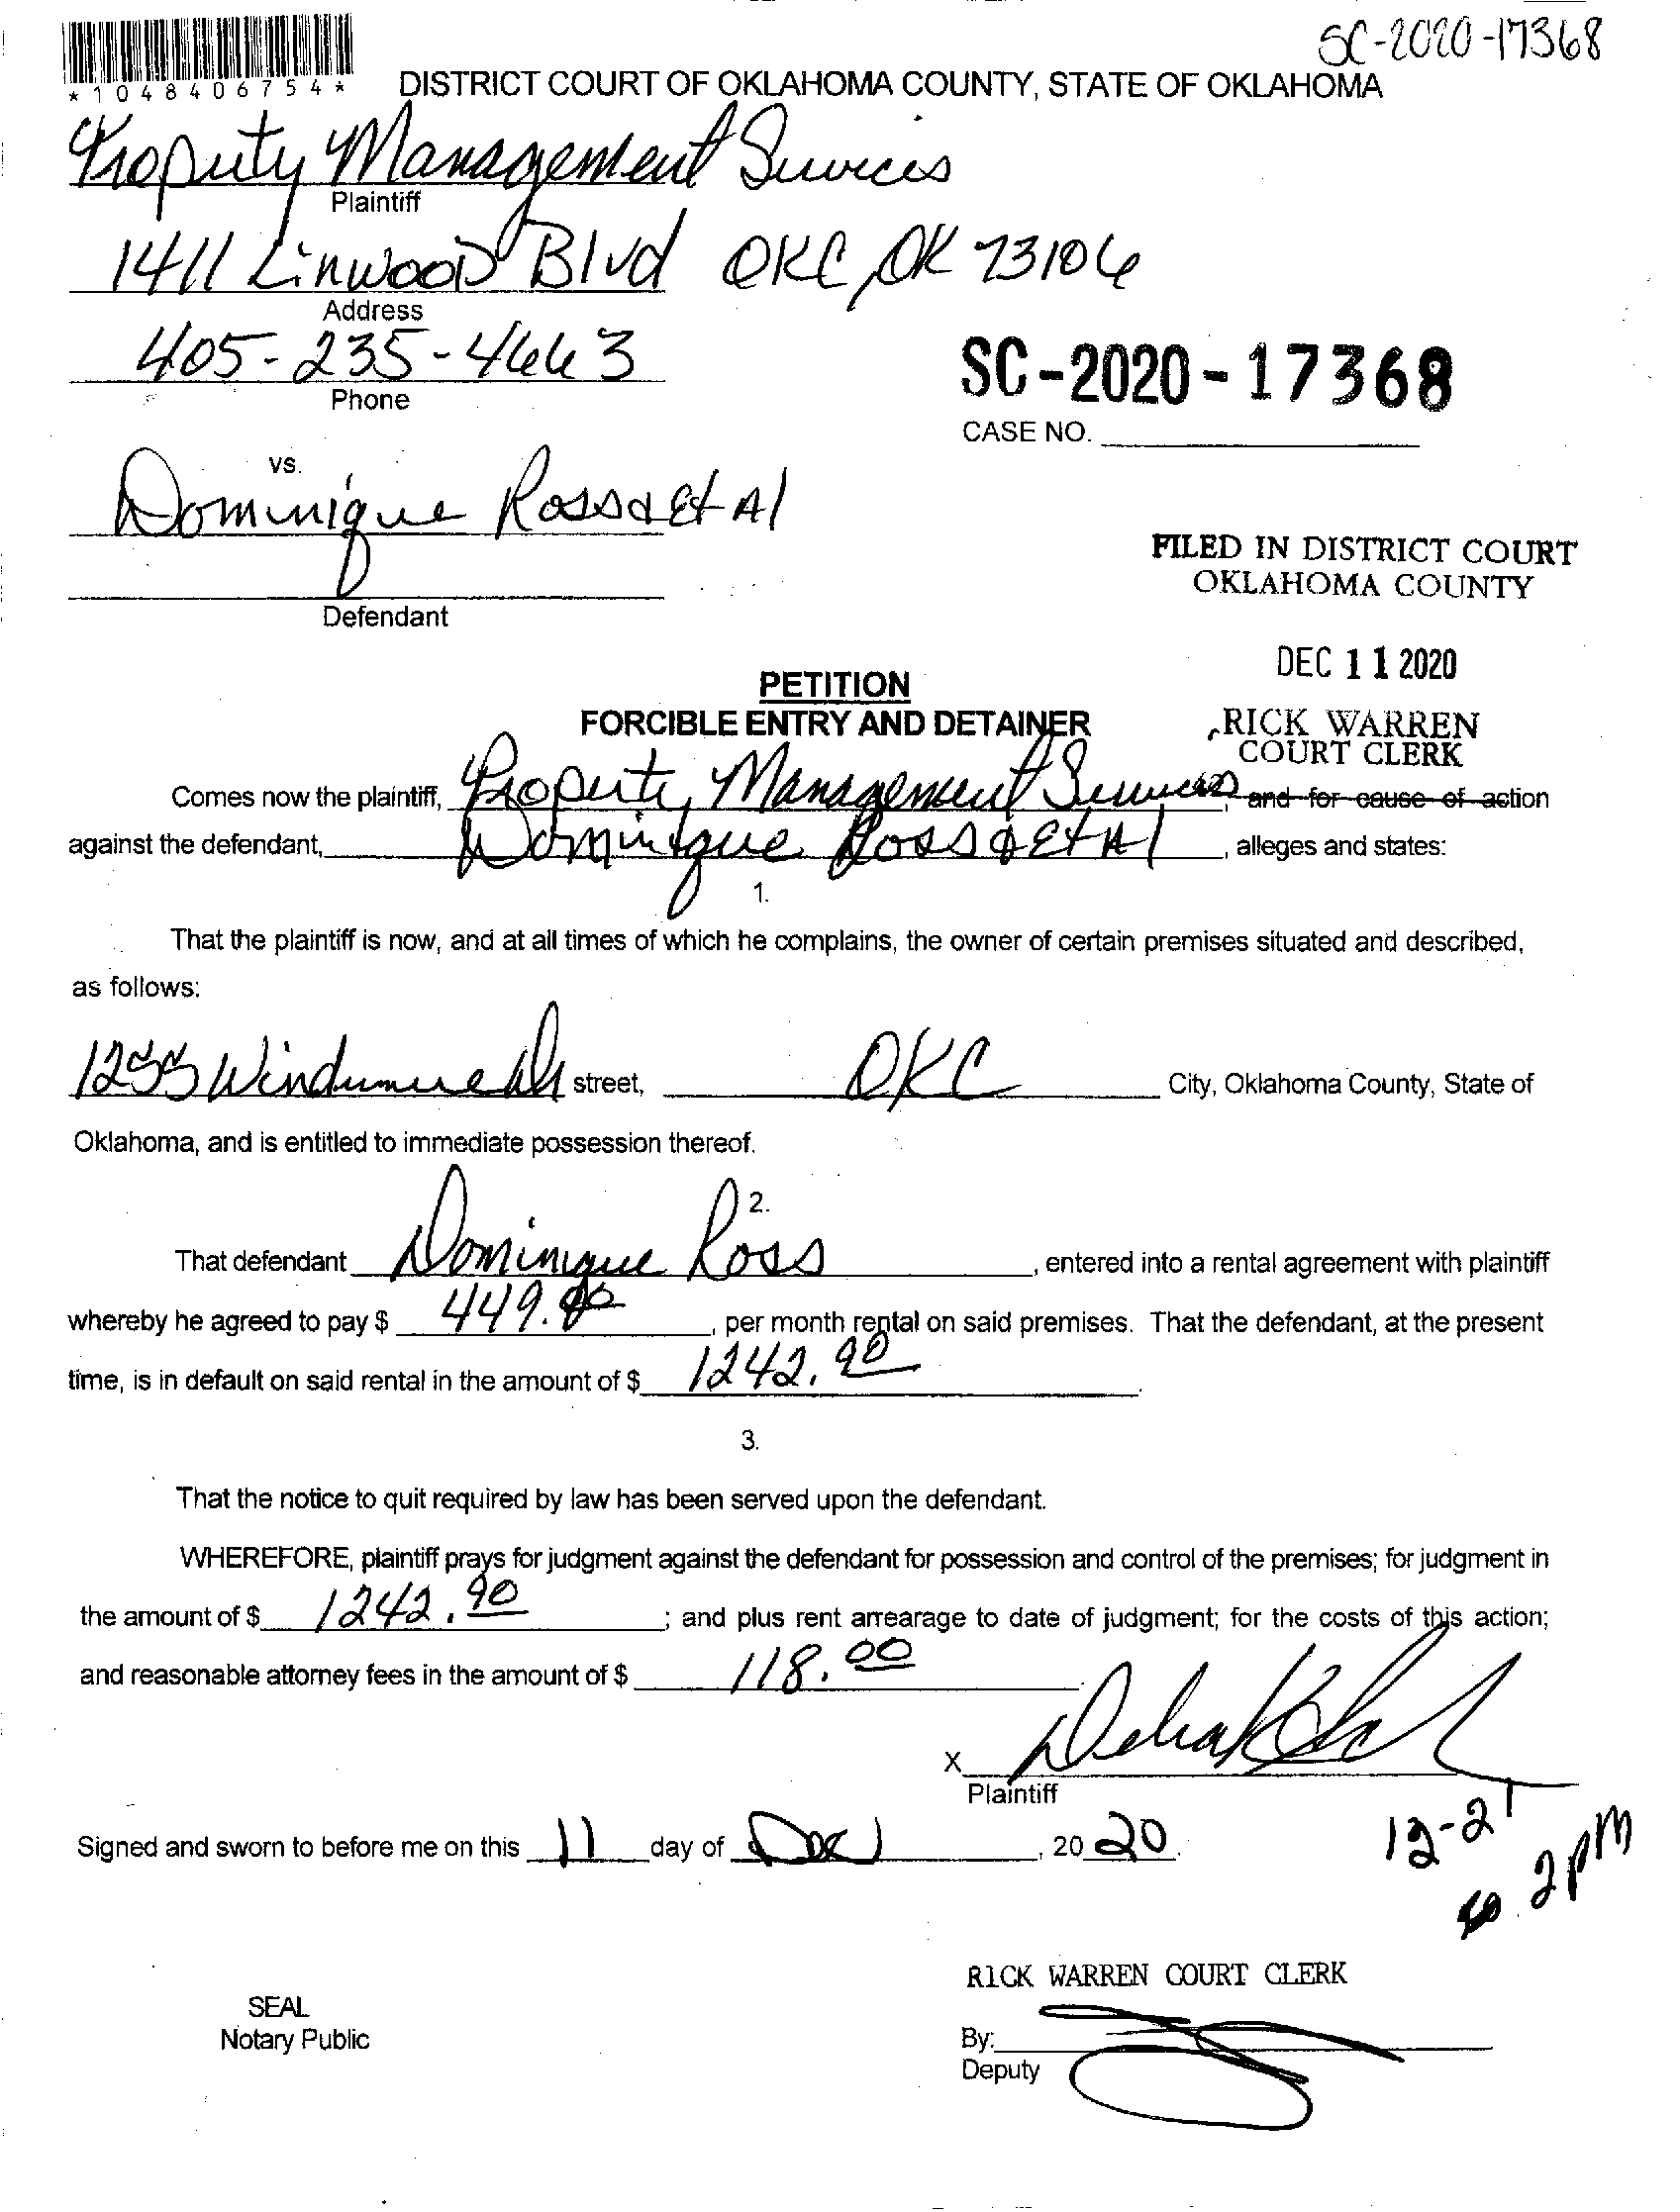 SC-2020-17368
*1048406754*
DISTRICT COURT OF OKLAHOMA COUNTY, STATE OF OKLAHOMA
Property Management Services
Plaintiff
1411 Linwood Blvd OKC, OK 73106
Address
405-235-4663
Phone
SC-2020-17368
CASE NO.
vs.
Dominique Ross & Et Al
Defendant
FILED IN DISTRICT COURT
OKLAHOMA COUNTY
DEC 11 2020
RICK WARREN
COURT CLERK
PETITION
FORCIBLE ENTRY AND DETAINER
Comes now the plaintiff, Property Management Services, and for cause of action
against the defendant, Dominique Ross & Et Al, alleges and states:
1.
That the plaintiff is now, and at all times of which he complains, the owner of certain premises situated and described,
as follows:
1255 street, OKC City, Oklahoma County, State of
Oklahoma, and is entitled to immediate possession thereof.
2.
That defendant Dominique Ross, entered into a rental agreement with plaintiff
whereby he agreed to pay $ 449.00, per month rental on said premises. That the defendant, at the present
time, is in default on said rental in the amount of $ 1242.90.
3.
That the notice to quit required by law has been served upon the defendant.
WHEREFORE, plaintiff prays for judgment against the defendant for possession and control of the premises; for judgment in
the amount of $ 1242.90; and plus rent arrearage to date of judgment; for the costs of this action;
and reasonable attorney fees in the amount of $ 118.00.
X
Plaintiff
Signed and sworn to before me on this 11 day of Dec, 20 20.
12-21
2pm
RICK WARREN COURT CLERK
SEAL
Notary Public
By:
Deputy